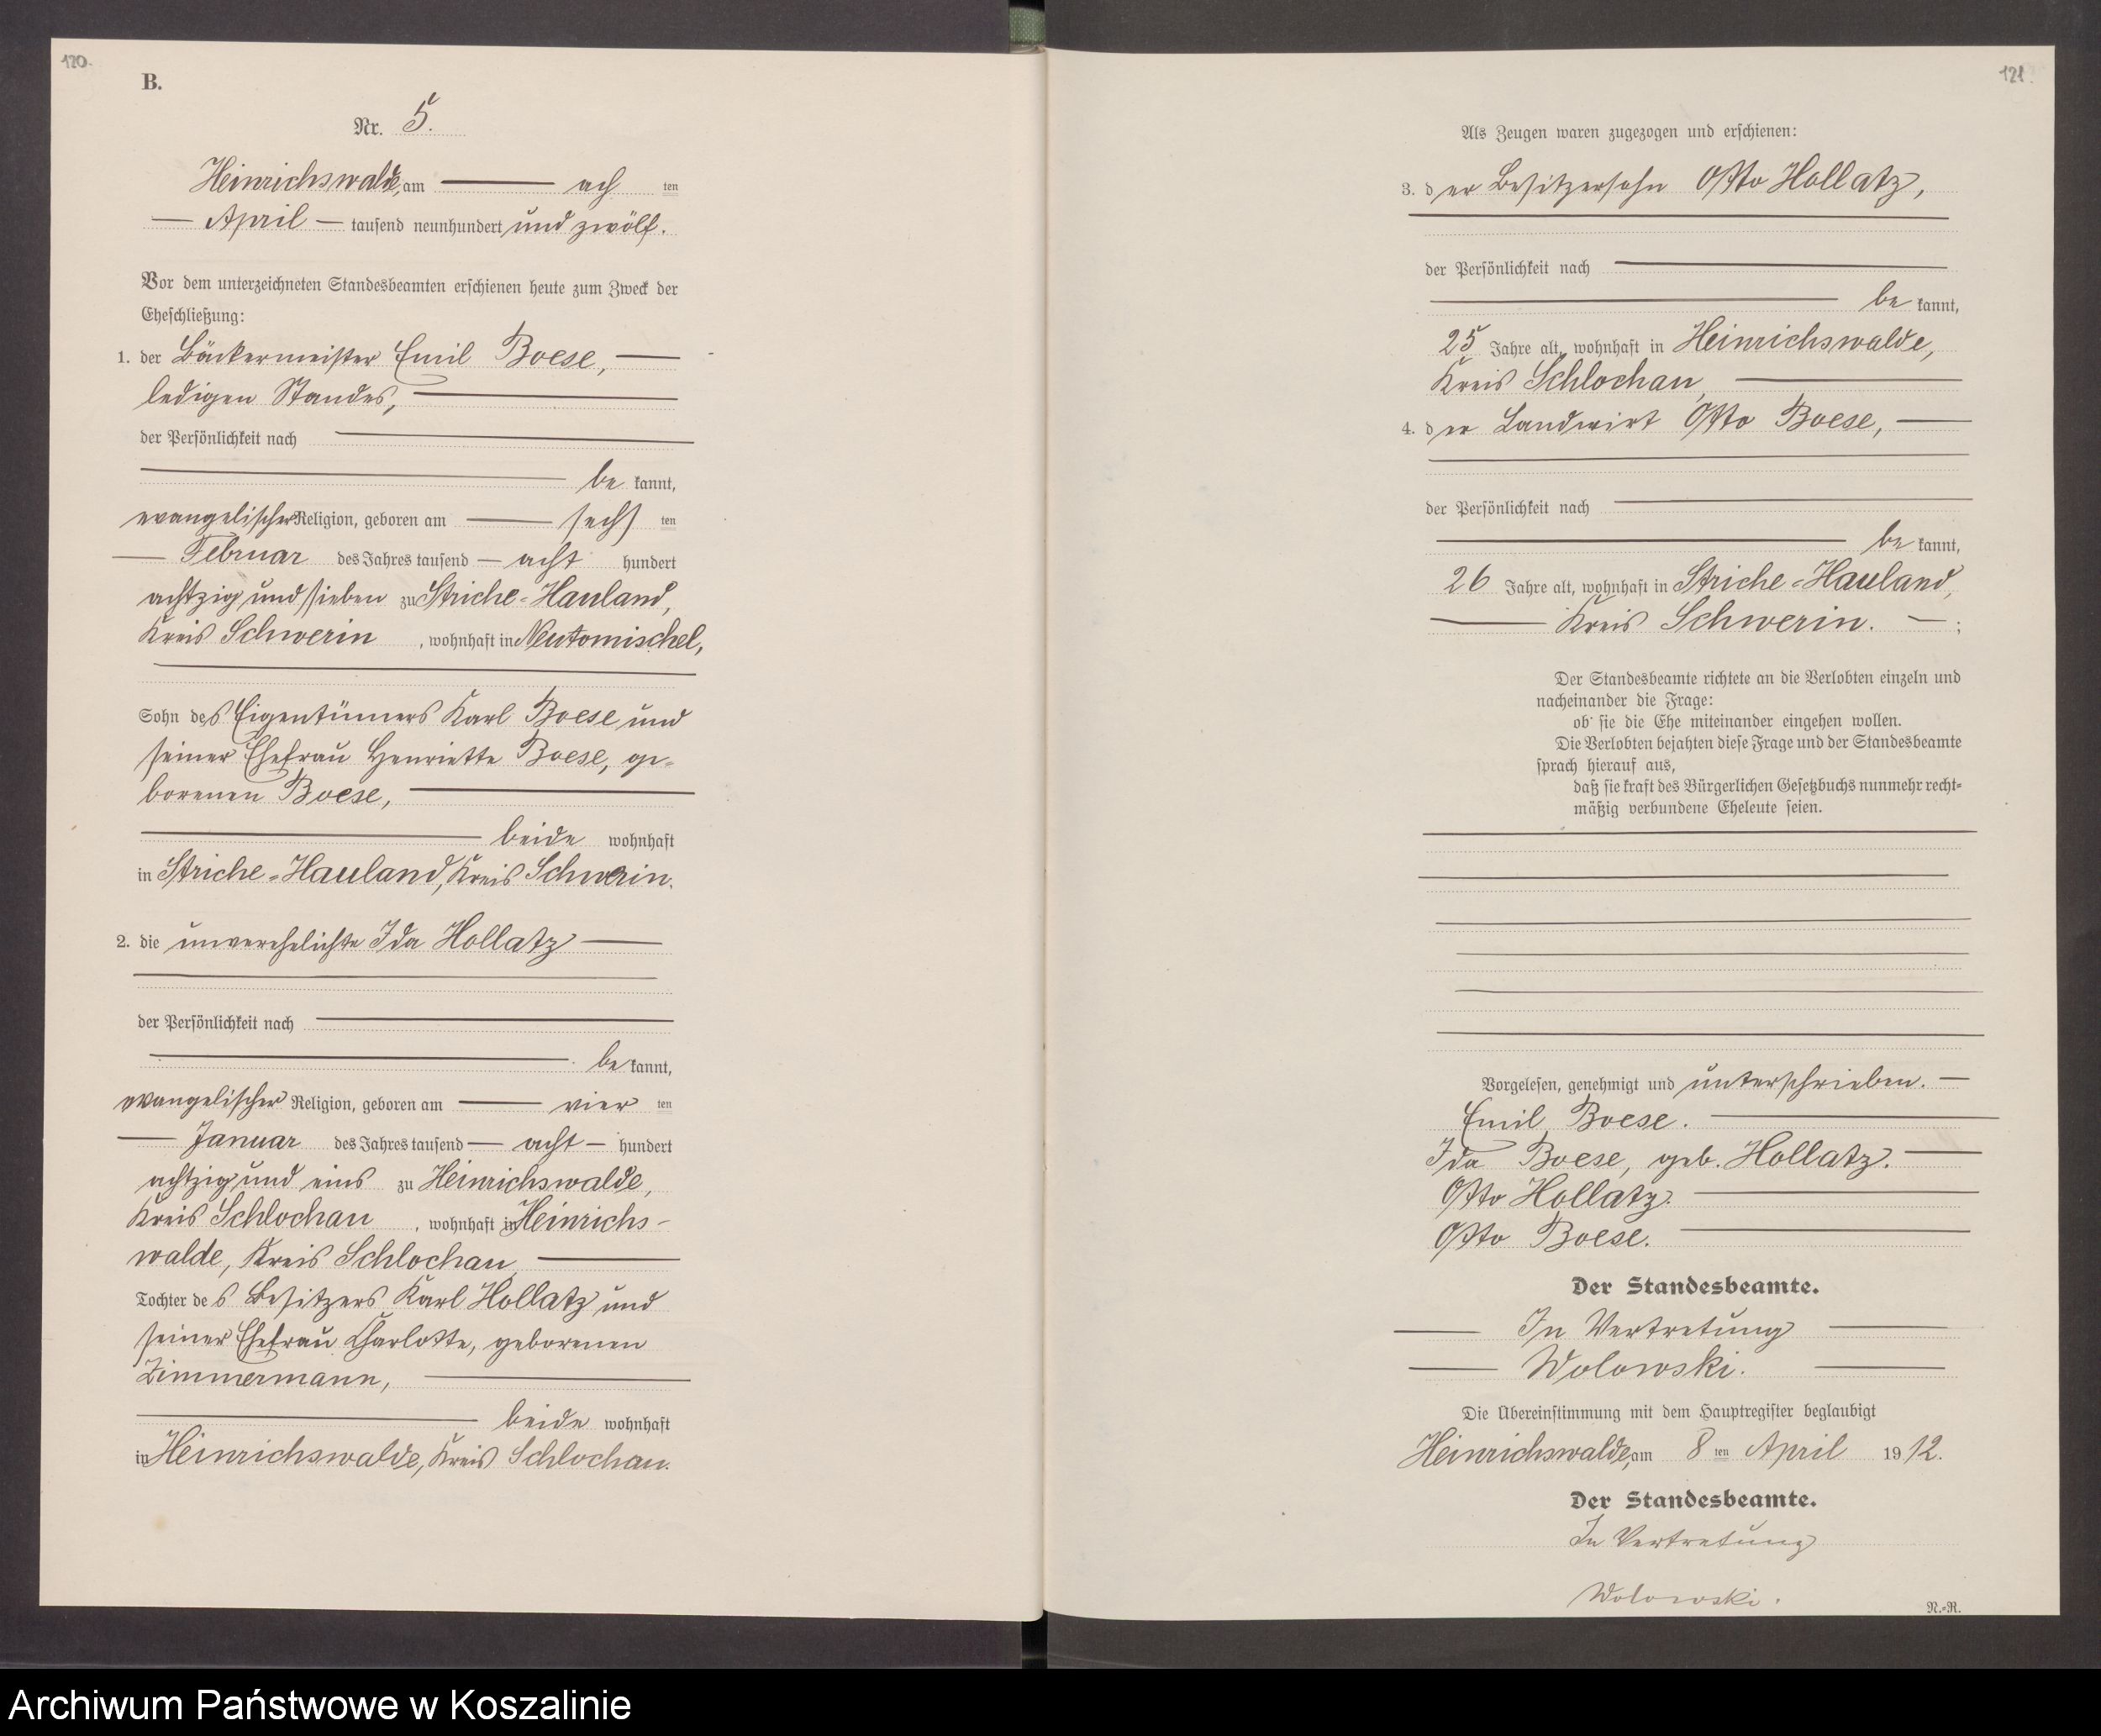 120.
B.
Nr. 5.
Heinrichswalde, am ach ten
April tausend neunhundert und zwölf.
Vor dem unterzeichneten Standesbeamten erschienen heute zum Zweck der
Eheschließung:
1. der Bäckermeister Emil Boese,
ledigen Standes,
der Persönlichkeit nach
be kannt,
evangelischer Religion, geboren am sechs ten
Februar des Jahres tausend acht hundert
achtzig und sieben zu Striche-Hauland,
Kreis Schwerin, wohnhaft in Neutomischel,
Sohn des Eigentümers Karl Boese und
seiner Ehefrau Henriette Boese, ge-
borenen Boese,
beide wohnhaft
in Striche-Hauland, Kreis Schwerin.
2. die unverehelichte Ida Hollatz
der Persönlichkeit nach
be kannt,
evangelischer Religion, geboren am vier ten
Januar des Jahres tausend acht hundert
achtzig und eins zu Heinrichswalde,
Kreis Schlochau, wohnhaft in Heinrichs-
walde, Kreis Schlochau,
Tochter des Besitzers Karl Hollatz und
seiner Ehefrau Charlotte, geborenen
Zimmermann,
beide wohnhaft
in Heinrichswalde, Kreis Schlochau.
121.
Als Zeugen waren zugezogen und erschienen:
3. der Besitzersohn Otto Hollatz,
der Persönlichkeit nach
be kannt,
25 Jahre alt, wohnhaft in Heinrichswalde,
Kreis Schlochau,
4. der Landwirt Otto Boese,
der Persönlichkeit nach
be kannt,
26 Jahre alt, wohnhaft in Striche-Hauland,
Kreis Schwerin. ;
Der Standesbeamte richtete an die Verlobten einzeln und
nacheinander die Frage:
ob sie die Ehe miteinander eingehen wollen.
Die Verlobten bejahten diese Frage und der Standesbeamte
sprach hierauf aus,
daß sie kraft des Bürgerlichen Gesetzbuchs nunmehr recht-
mäßig verbundene Eheleute seien.
Vorgelesen, genehmigt und unterschrieben.
Emil Boese.
Ida Boese, geb. Hollatz.
Otto Hollatz.
Otto Boese.
Der Standesbeamte.
In Vertretung
Wolowski.
Die Übereinstimmung mit dem Hauptregister beglaubigt
Heinrichswalde, am 8 ten April 1912.
Der Standesbeamte.
In Vertretung
Wolowski.
N.-R.
Archiwum Państwowe w Koszalinie